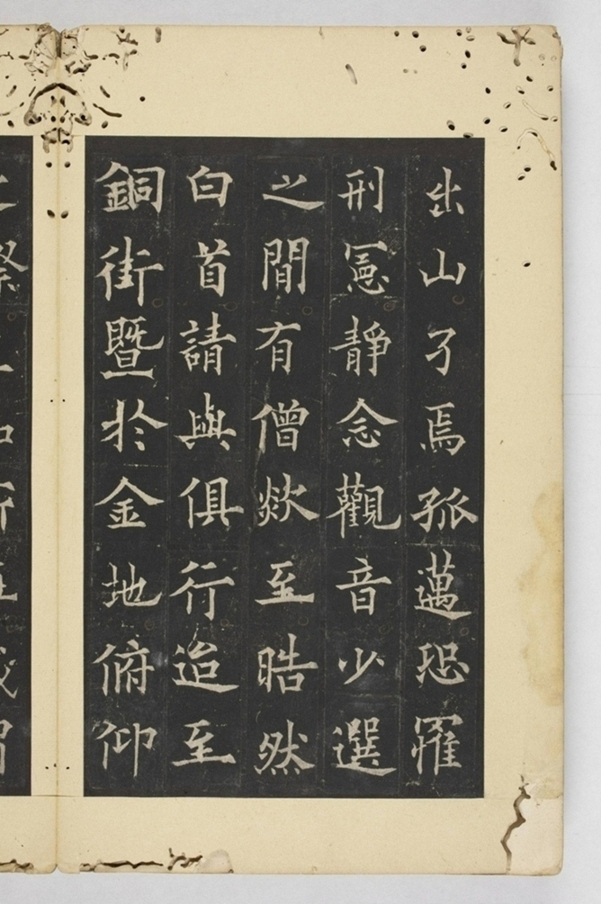 出山了焉孤邁恐罹
刑憲靜念觀音少選
之間有僧欻至晧然
白首請與俱行迨至
銅街暨於金地俯仰